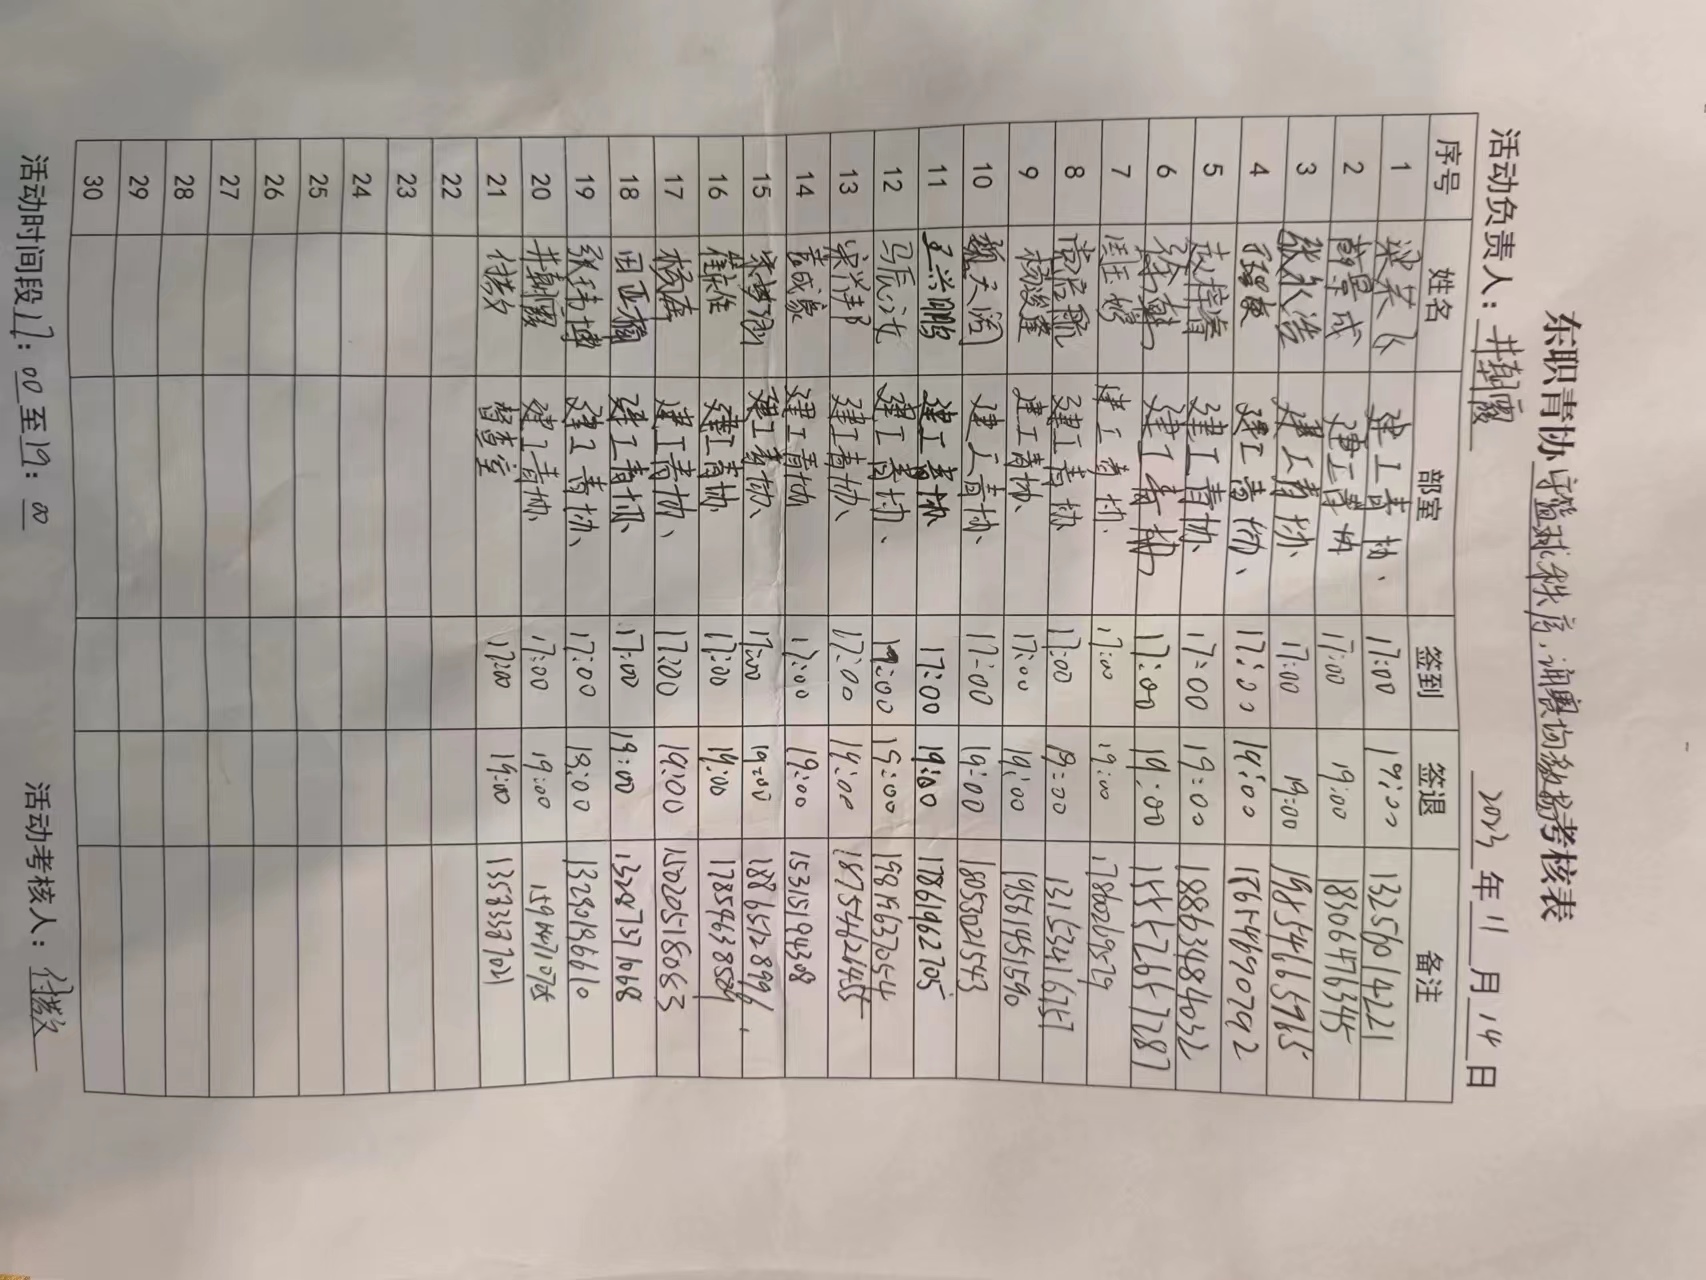 东职青协守篮球秩序，调赛场考核表
活动负责人：井朝霞 2023年11月14日
序号 姓名 部室 签到 签退 备注
1 梁笑飞 建工青协、 17:00 19:00 13256014221
2 薛景成 建工青协 17:00 19:00 18306476345
3 张永浩 建工青协、 17:00 19:00 19854665965
4 建工青协、 17:00 19:00 17654690792
5 建工青协、 17:00 19:00 18863484032
6 徐 建工青协 17:00 19:00 15557667287
7 周玉 建工青协 17:00 19:00 17860269579
8 黄启航 建工青协 17:00 19:00
9 杨逢 建工青协、 17:00 19:00 19561451590
10 魏天阔 建工青协、 17:00 19:00 18053021543
11 王兴鹏 建工青协、 17:00 19:00 17861962705
12 马辰 建工青协、 17:00 19:00 19819637054
13 宋洋邦 建工青协、 17:00 19:00 18754626455
14 成豪 建工青协 17:00 19:00 15315194308
15 宋 建工青协、 17:00 19:00 18865728996
16 崔 建工青协 17:00 19:00 17859638589
17 杨 建工青协、 17:00 19:00 15020518063
18 田亚楠 建工青协、 17:00 19:00 13287371068
19 张玮博 建工青协、 17:00 19:00 13230186610
20 井朝霞 建工青协、 17:00 19:00
21 督查室 17:00 19:00 13583387021
22
23
24
25
26
27
28
29
30
活动时间段17：00至19：00 活动考核人：